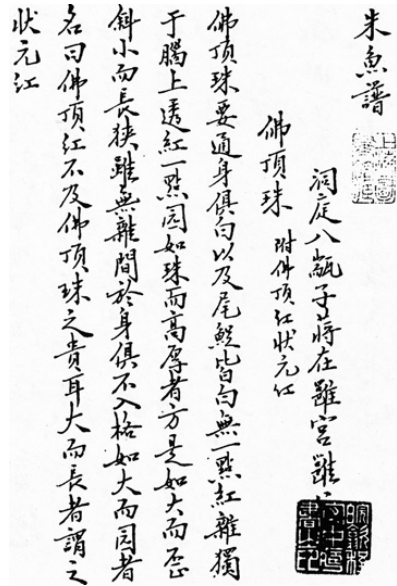 朱魚譜
洞庭八甌子蔣在雝宮雝
佛頂珠 附佛頂紅狀元紅
佛頂珠要通身俱白以及尾鬛皆白無一點紅雜獨
于腦上透紅一點园如珠而高厚者方是如大而歪
斜小而長狹雖無雜間於身俱不入格如大而园者
名曰佛頂紅不及佛頂珠之貴耳大而長者謂之
狀元紅